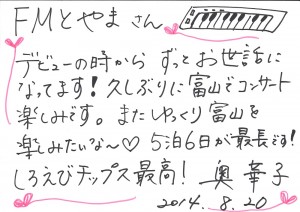 FMとやま さん
デビューの時から ずっとお世話に
なってます！久しぶりに富山でコンサート
楽しみです。またゆっくり富山を
楽しみたいな〜♡ 5泊6日が最長です！
しろえびチップス最高！ 奥 華子
2014.8.20